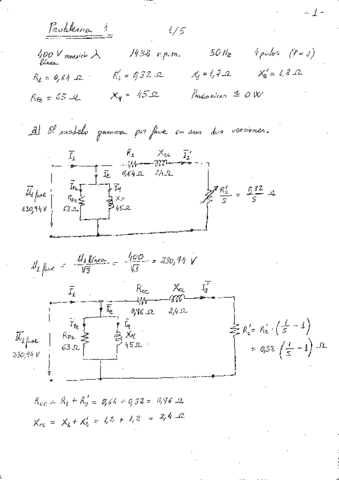 -1-
Problema 1
1/5
400 V conexión λ
línea
1432 r.p.m.
50 Hz
4 polos (P=2)
R₁ = 0,64 Ω
R₂' = 0,32 Ω
X₁ = 1,2 Ω
X₂' = 1,2 Ω
R_Fe = 63 Ω
X_μ = 45 Ω
P_mecánicas ≅ 0 W
a) El modelo gamma por fase en sus dos versiones.
I₁
R₁
X_cc
I₂'
0,64 Ω
2,4 Ω
I_Fe
I_μ
U₁ fase
230,94 V
R_Fe
63 Ω
X_μ
45 Ω
R₂'/S = 0,32/S Ω
U₁ fase = U₁ línea/√3 = 400/√3 = 230,94 V
I₁
R_cc
X_cc
I₂'
0,96 Ω
2,4 Ω
I_Fe
I_μ
U₁ fase
230,94 V
R_Fe
63 Ω
X_μ
45 Ω
R_c' = R₂' · (1/S - 1)
= 0,32 · (1/S - 1) Ω
R_cc = R₁ + R₂' = 0,64 + 0,32 = 0,96 Ω
X_cc = X₁ + X₂' = 1,2 + 1,2 = 2,4 Ω